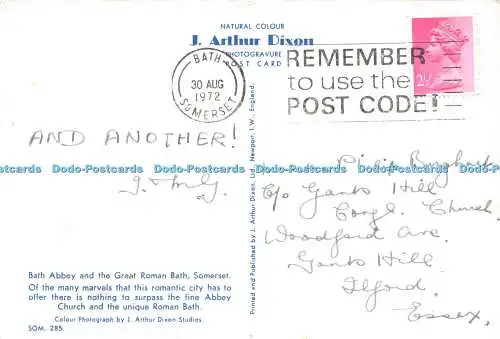 NATURAL COLOUR
J. Arthur Dixon
PHOTOGRAVURE
POST CARD
BATH
30 AUG
1972
SOMERSET
REMEMBER
to use the
POST CODE!
2½
AND ANOTHER!
Dodo-Postcards Dodo-Postcards Dodo-Postcards Dodo-Postcards Dodo-Postcards
Philip
C/o Gants Hill
Congl. Church,
Woodford Ave.
Gants Hill
Ilford,
Essex.
Printed and Published by J. Arthur Dixon Ltd., Newport, I.W., England.
Bath Abbey and the Great Roman Bath, Somerset.
Of the many marvels that this romantic city has to
offer there is nothing to surpass the fine Abbey
Church and the unique Roman Bath.
Colour Photograph by J. Arthur Dixon Studios.
SOM. 285.